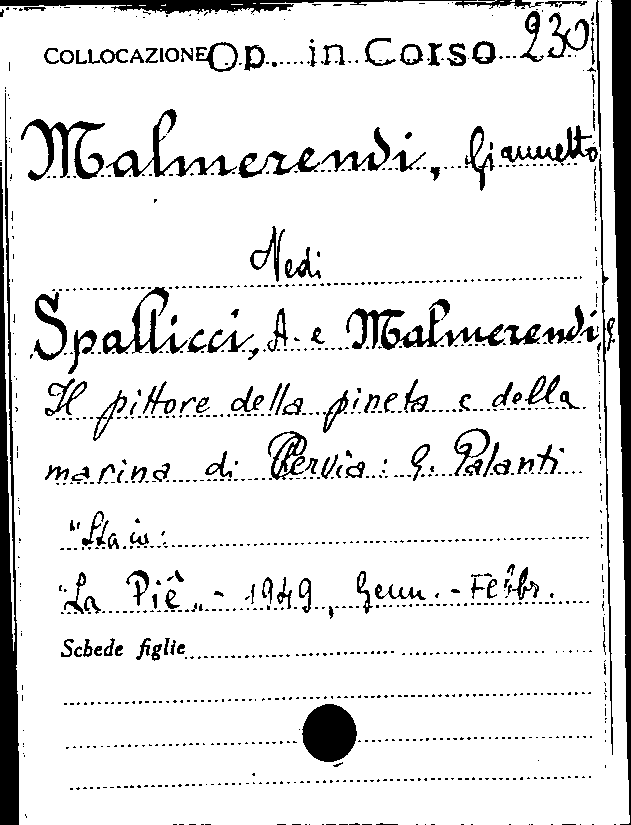 COLLOCAZIONE Op. in Corso 230
Malmerendi, Giannetto
Vedi
Spallicci, A. e Malmerendi, G.
Il pittore della pineta e della
marina di Cervia: G. Palanti
"Sta in:
"La Piê" - 1949, Genn. - Febbr.
Schede figlie